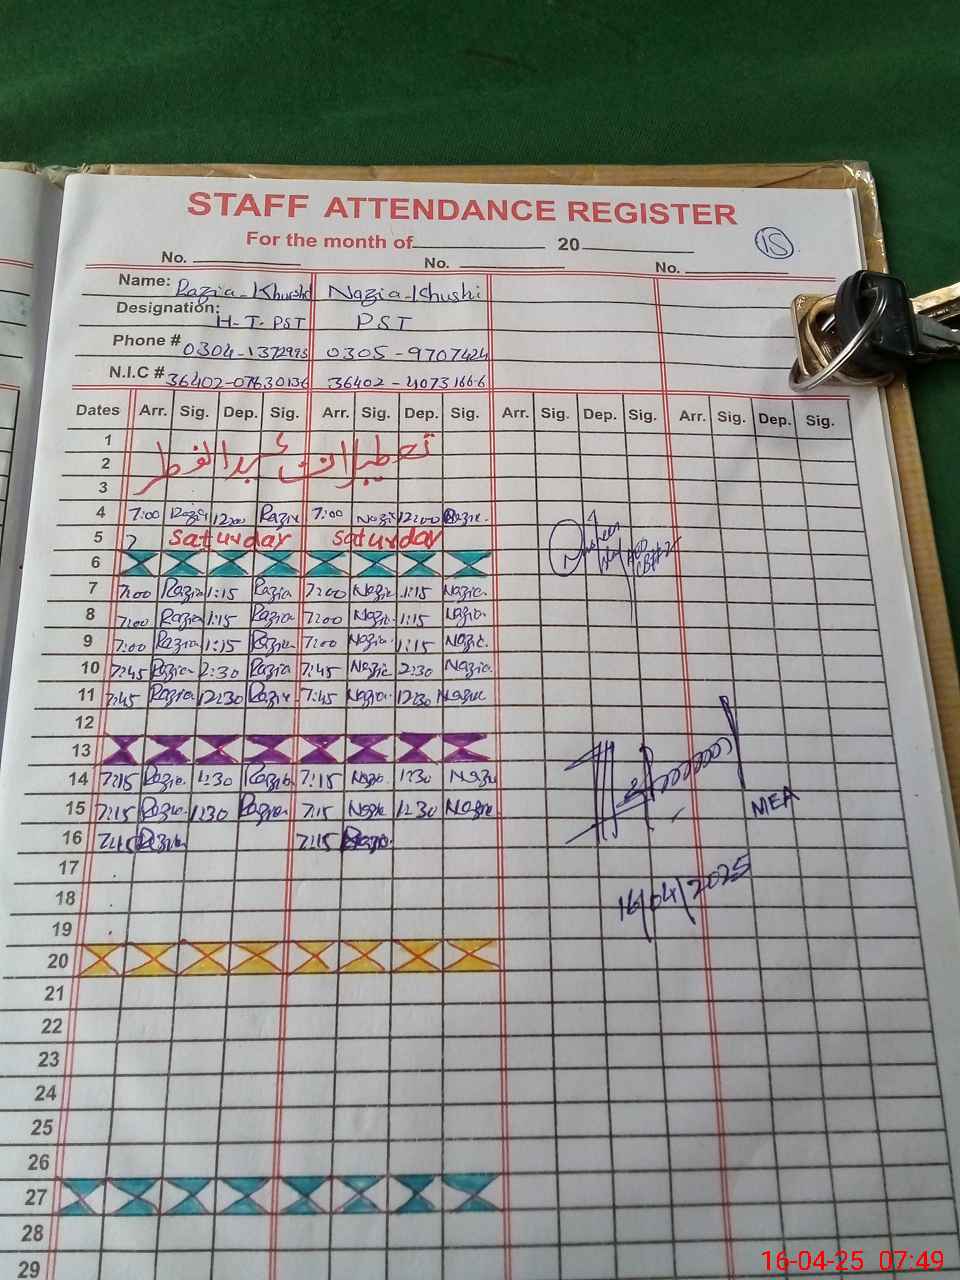 STAFF ATTENDANCE REGISTER
For the month of 20
15
No. No. No.
Name: Razia-Khurshi Nazia-Khushi
Designation: H-T-PST PST
Phone # 0304-1372993 0305-9707424
N.I.C # 36402-07630136 36402-4073166-6
Dates Arr. Sig. Dep. Sig. Arr. Sig. Dep. Sig. Arr. Sig. Dep. Sig. Arr. Sig. Dep. Sig.
1
2 تعطیلات عید الفطر
3
4 7:00 Razia 12:00 Razia 7:00 Nazia 12:00 Nazia
5 Saturday Saturday
6
7 7:00 Razia 1:15 Razia 7:00 Nazia 1:15 Nazia
8 7:00 Razia 1:15 Razia 7:00 Nazia 1:15 Nazia
9 7:00 Razia 1:15 Razia 7:00 Nazia 1:15 Nazia
10 7:45 Razia 2:30 Razia 7:45 Nazia 2:30 Nazia
11 7:45 Razia 12:30 Razia 7:45 Nazia 12:30 Nazia
12
13
14 7:15 Razia 1:30 Razia 7:15 Nazia 1:30 Nazia
15 7:15 Razia 1:30 Razia 7:15 Nazia 1:30 Nazia
MEA
16 7:15 Razia 7:15 Nazia
17
18
16/04/2025
19
20
21
22
23
24
25
26
27
28
29
16-04-25 07:49